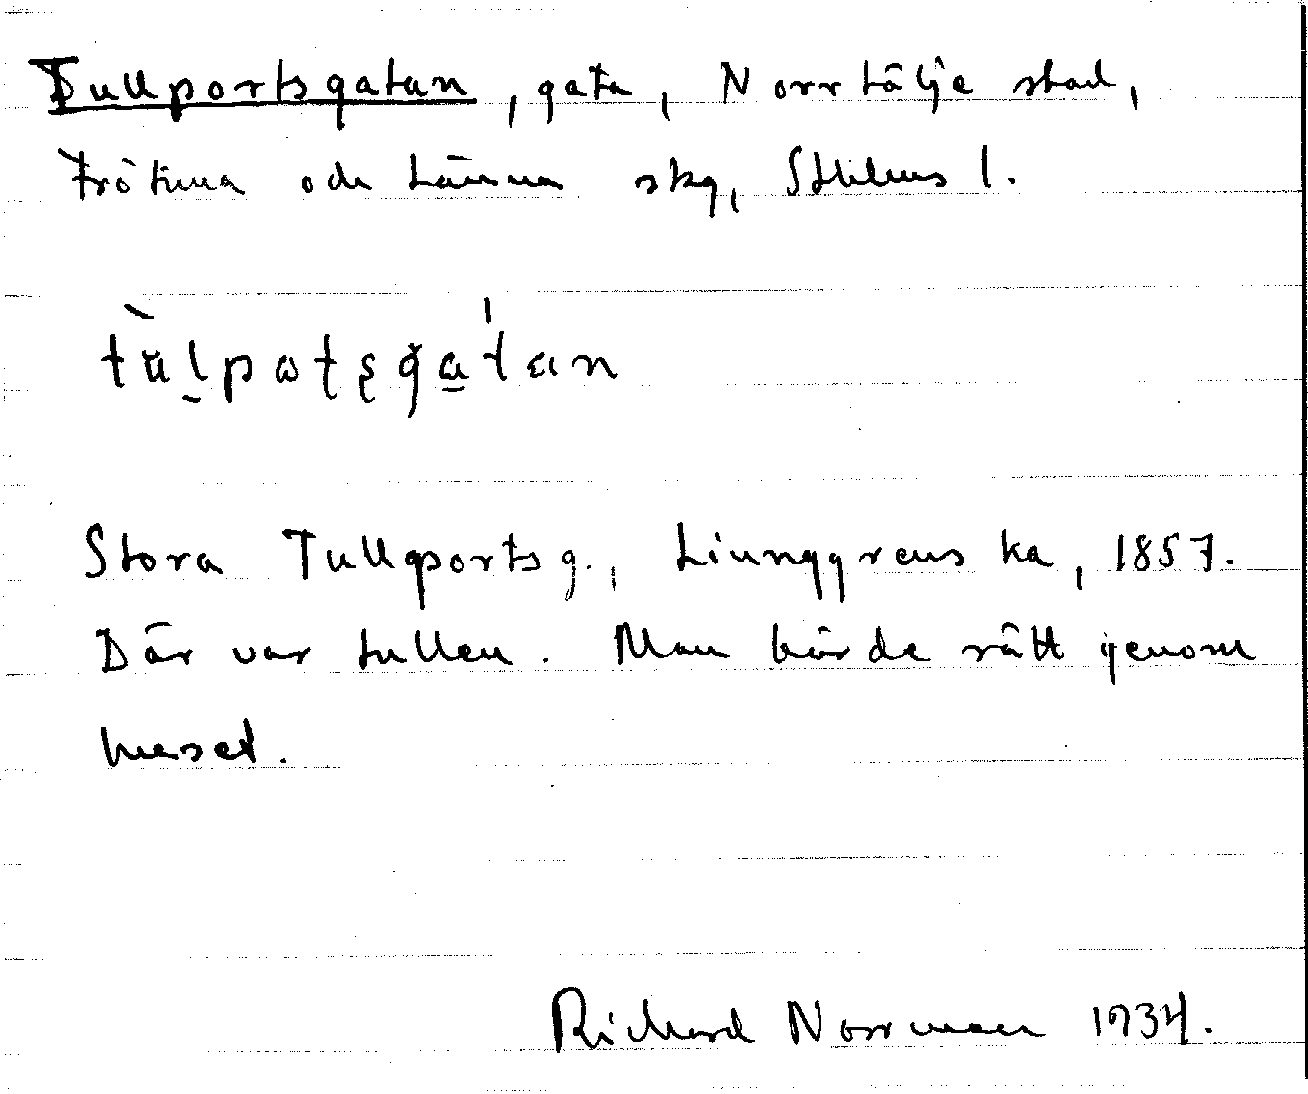 Tullportsgatan, gata, Norrtälje stad,
Frötuna och Länna skg, Sthlms l.
tùlpotsgátan
Stora Tullportsg., Ljunggrens ka, 1857.
Där var tullen. Man körde rätt genom
huset.
Richard Norrman 1934.